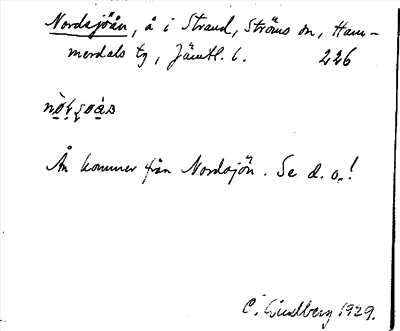 Nordsjöån, å i Strand, Ströms sn, Ham-
merdals tg, Jämtl. l. 226
Ån kommer från Nordsjön. Se d. o.!
C. Lindberg 1929.